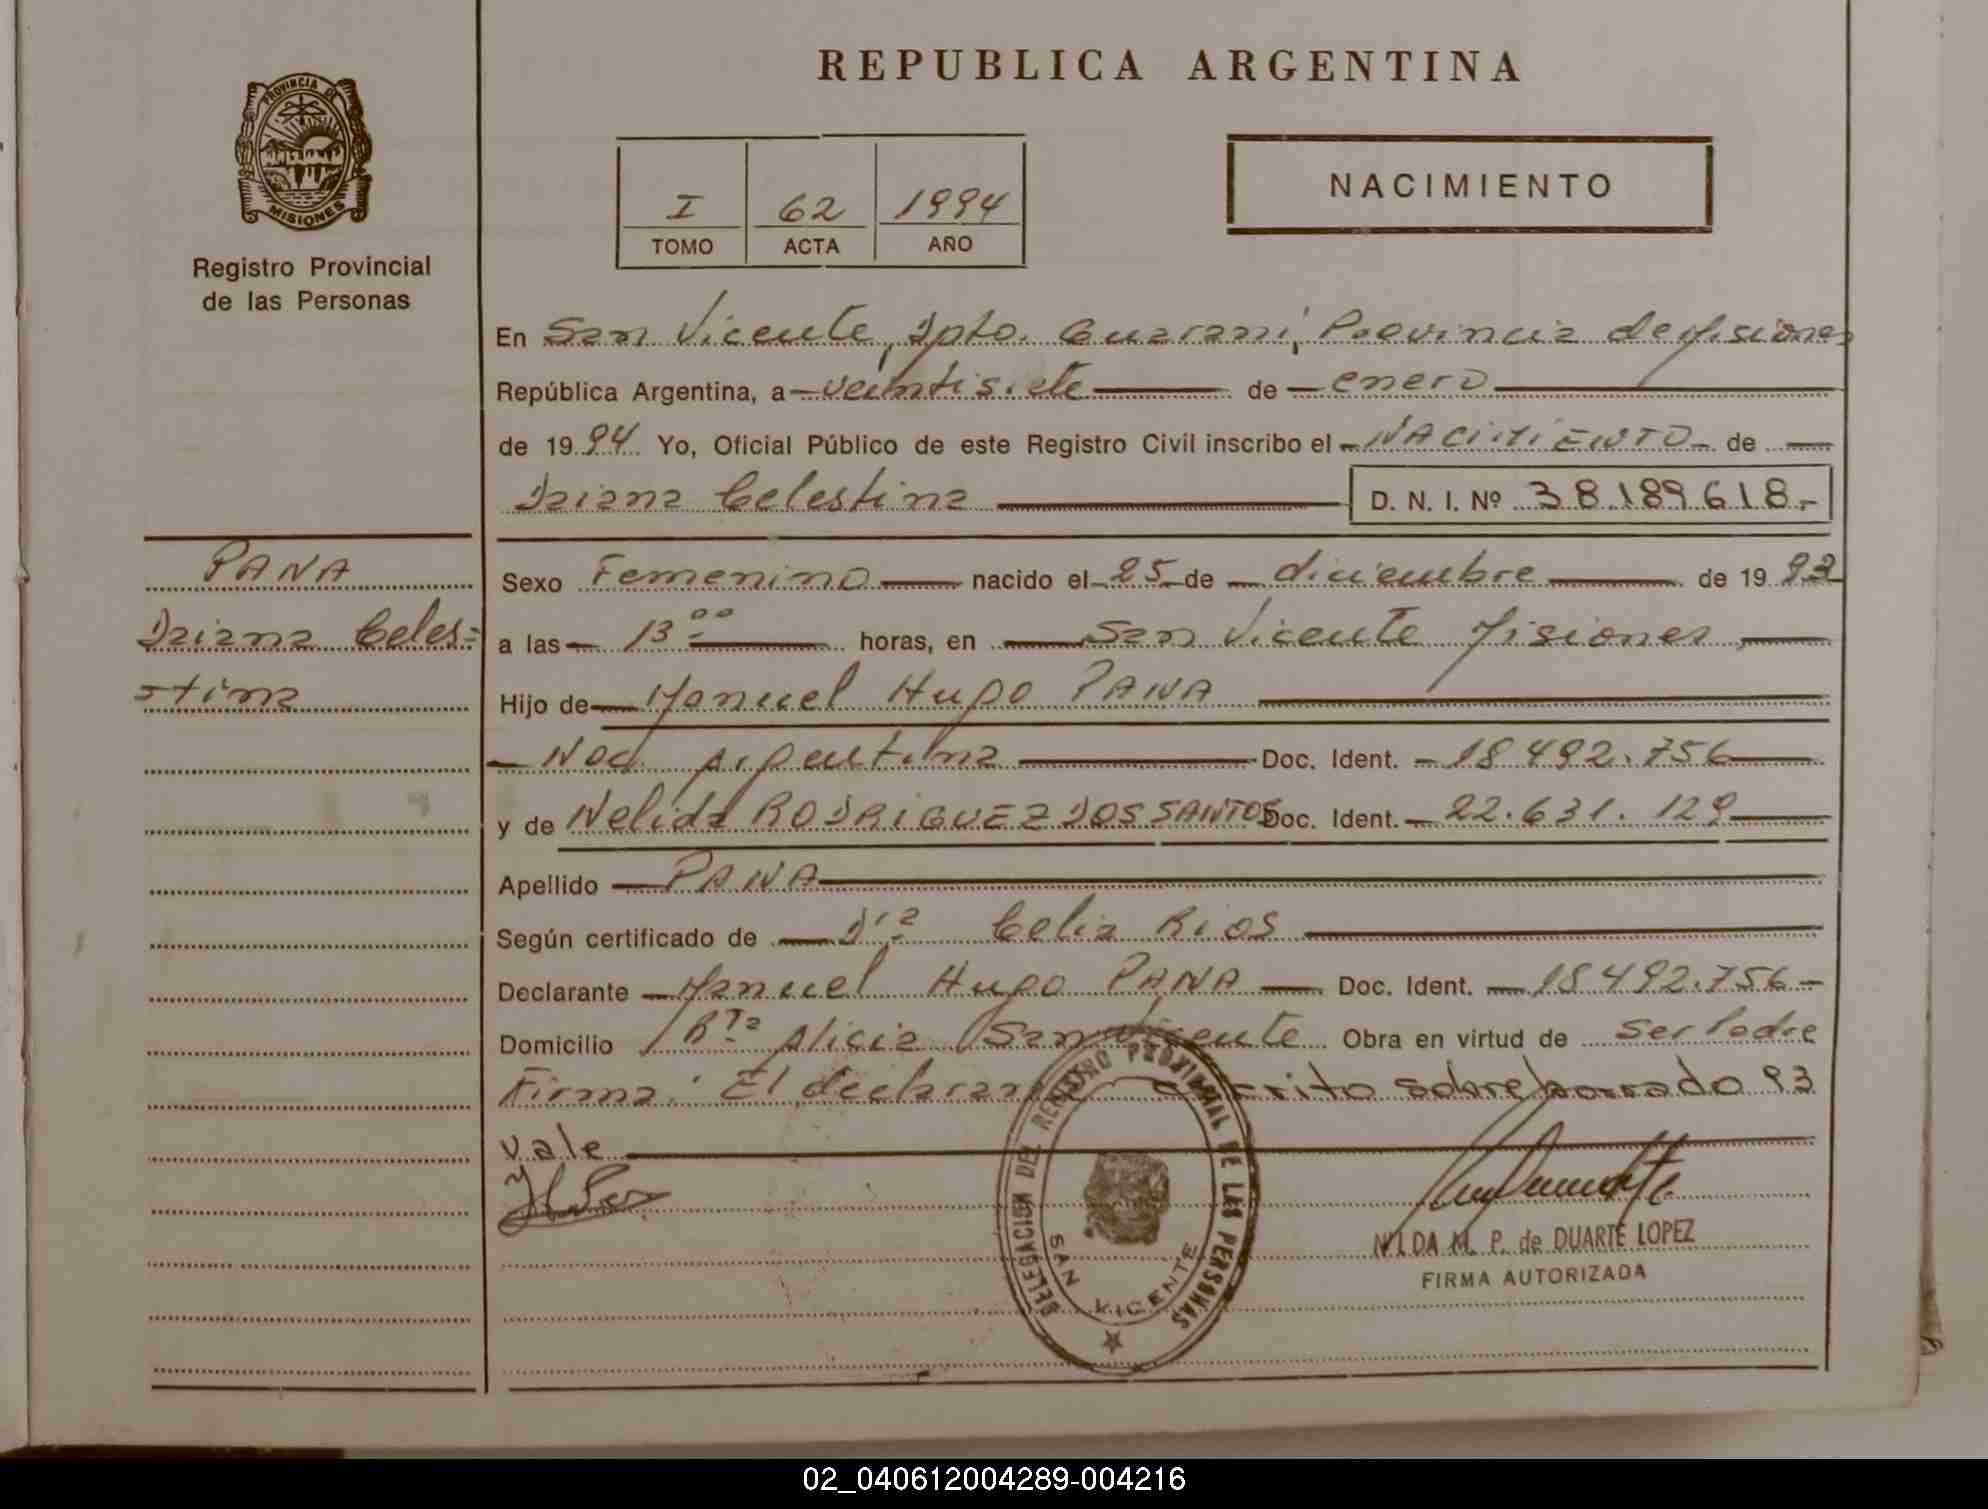 REPUBLICA ARGENTINA
PROVINCIA DE
MISIONES
Registro Provincial
de las Personas
I 62 1994
TOMO ACTA AÑO
NACIMIENTO
En San Vicente, Dpto. Guaraní, Provincia de Misiones
República Argentina, a veintisiete de enero
de 1994 Yo, Oficial Público de este Registro Civil inscribo el NACIMIENTO de
Daiana Celestina D. N. I. Nº 38.189.618.-
PANA
Daiana Celes=
=tina
Sexo Femenino nacido el 25 de diciembre de 1993
a las 13 00 horas, en San Vicente Misiones,
Hijo de Manuel Hugo PANA
Nac. Argentina Doc. Ident. 18.492.756
y de Nelida RODRIGUEZ DOS SANTOS Doc. Ident. 22.631.129
Apellido PANA
Según certificado de Dra Celia Rios
Declarante Manuel Hugo PANA Doc. Ident. 18.492.756
Domicilio Pto Alicia San Vicente Obra en virtud de ser Padre
Firma: El declarante escrito sobreborrado 93
vale
DELEGACION DEL REGISTRO PROVINCIAL DE LAS PERSONAS
SAN VICENTE
NILDA M. P. de DUARTE LOPEZ
FIRMA AUTORIZADA
02_040612004289-004216